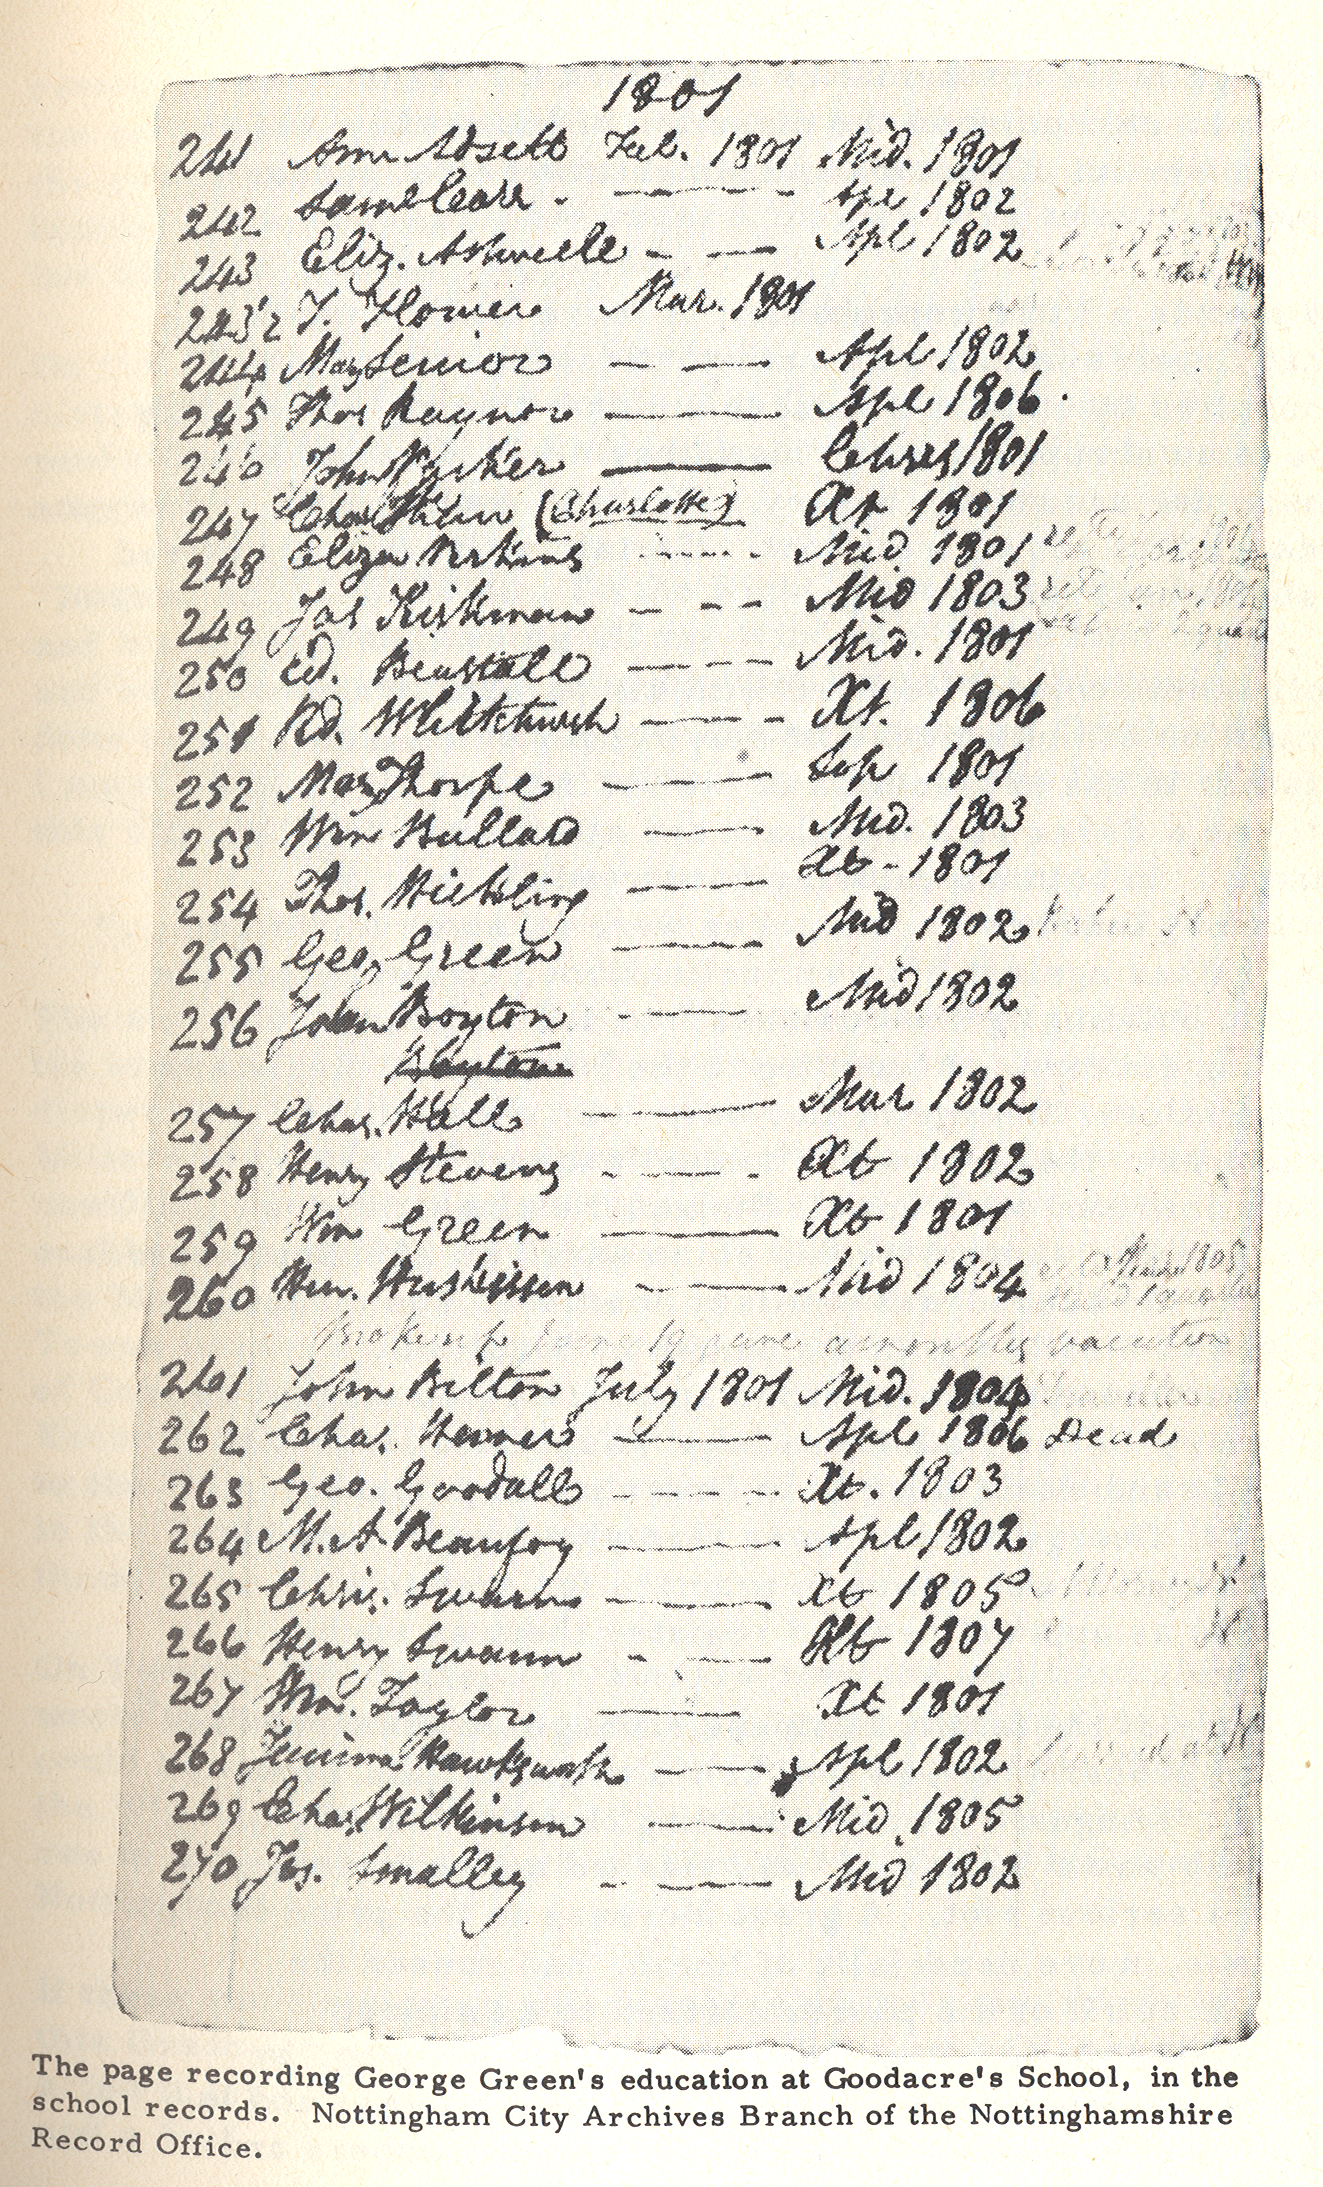 1801
241 Ann Adsett Feb. 1801 Mid. 1801
242 Saml - Apl 1802
243 Eliz. Ashwell - — Apl 1802
243½ T. Flower Mar. 1801
244 Mary Senior - — Apl 1802
245 Thos Raynor — Apl 1806.
246 John — 1801
247 Chas (Charlotte) Xt 1801
248 Eliza Perkins ---- Mid 1801
249 Jas Kirkman - -- Mid 1803
250 Ed. — - - Mid. 1801
251 Rd. Whitchurch — - - Xt. 1806
252 Mary Thorpe — Sep 1801
253 Wm Bullard — Mid. 1803
254 Thos. — Xt - 1801
255 Geo. Green — Mid 1802
256 John Boyton — Mid 1802
257 Chas. Hall — Mar 1802
258 Henry Stevens - — - Xt 1802
259 Wm Green — Xt 1801
260 — Mid 1804
Broke up June 19
vacation
261 John Bilton July 1801 Mid. 1804
262 Chas. — Apl 1806 Dead
263 Geo. Goodall - — - Xt. 1803
264 M. A. Beaufoy — Apl 1802
265 Chris. Swann — Xt 1805
266 Henry Swann - — Xt 1807
267 Wm. Taylor — Xt 1801
268 Jemima Hawksworth — Apl 1802
269 Chas. Wilkinson — Mid. 1805
270 Jas. Smalley - — Mid 1802
The page recording George Green's education at Goodacre's School, in the
school records. Nottingham City Archives Branch of the Nottinghamshire
Record Office.